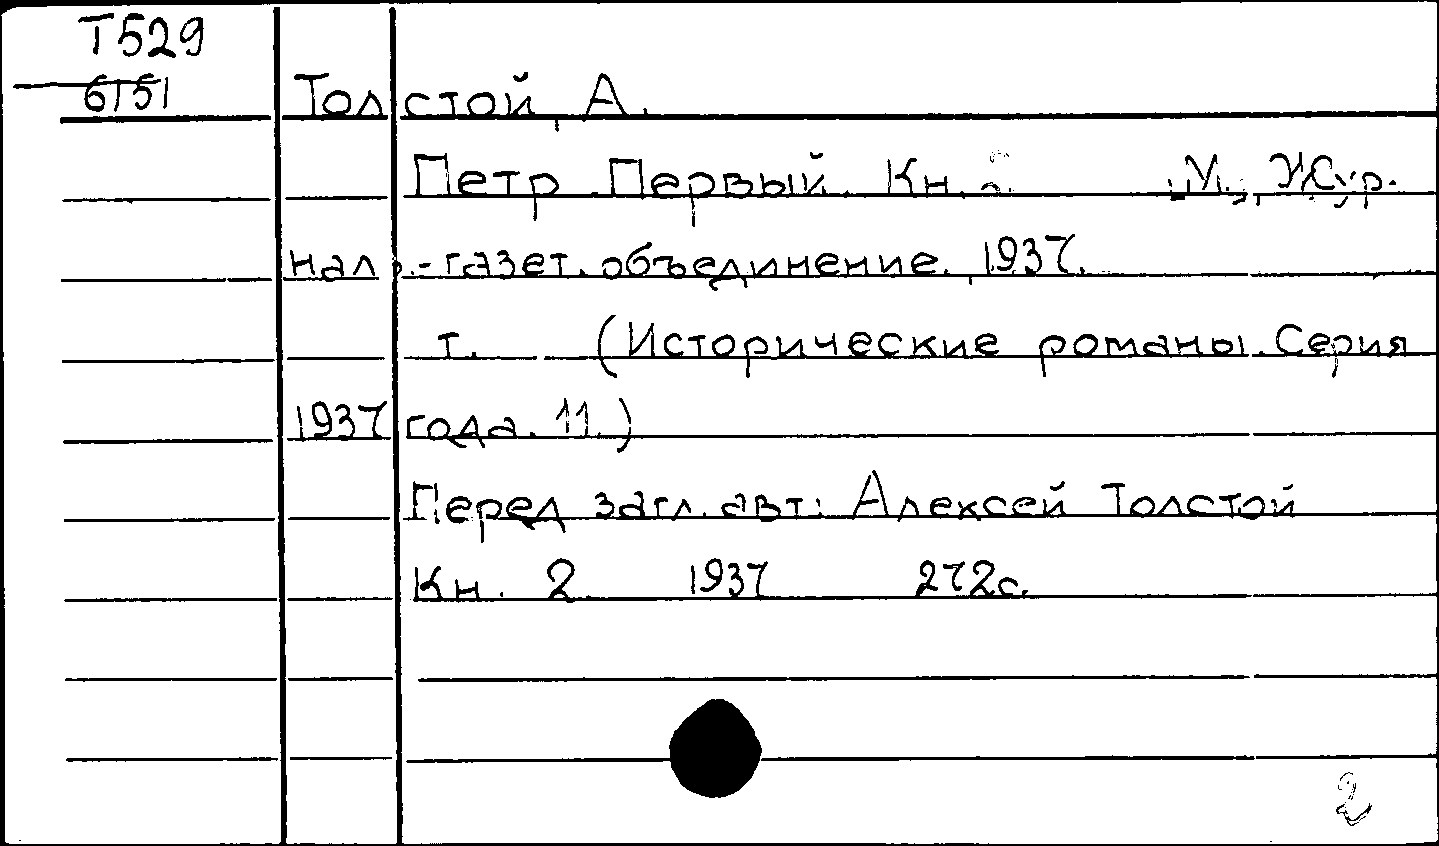 Т529
6151
Толстой, А.
Петр Первый. Кн. М., Жур.
нальн.-газет. объединение, 1937.
т. (Исторические романы. Серия
1937 года. 11.)
Перед загл. авт: Алексей Толстой
Кн. 2 1937 272с.
2